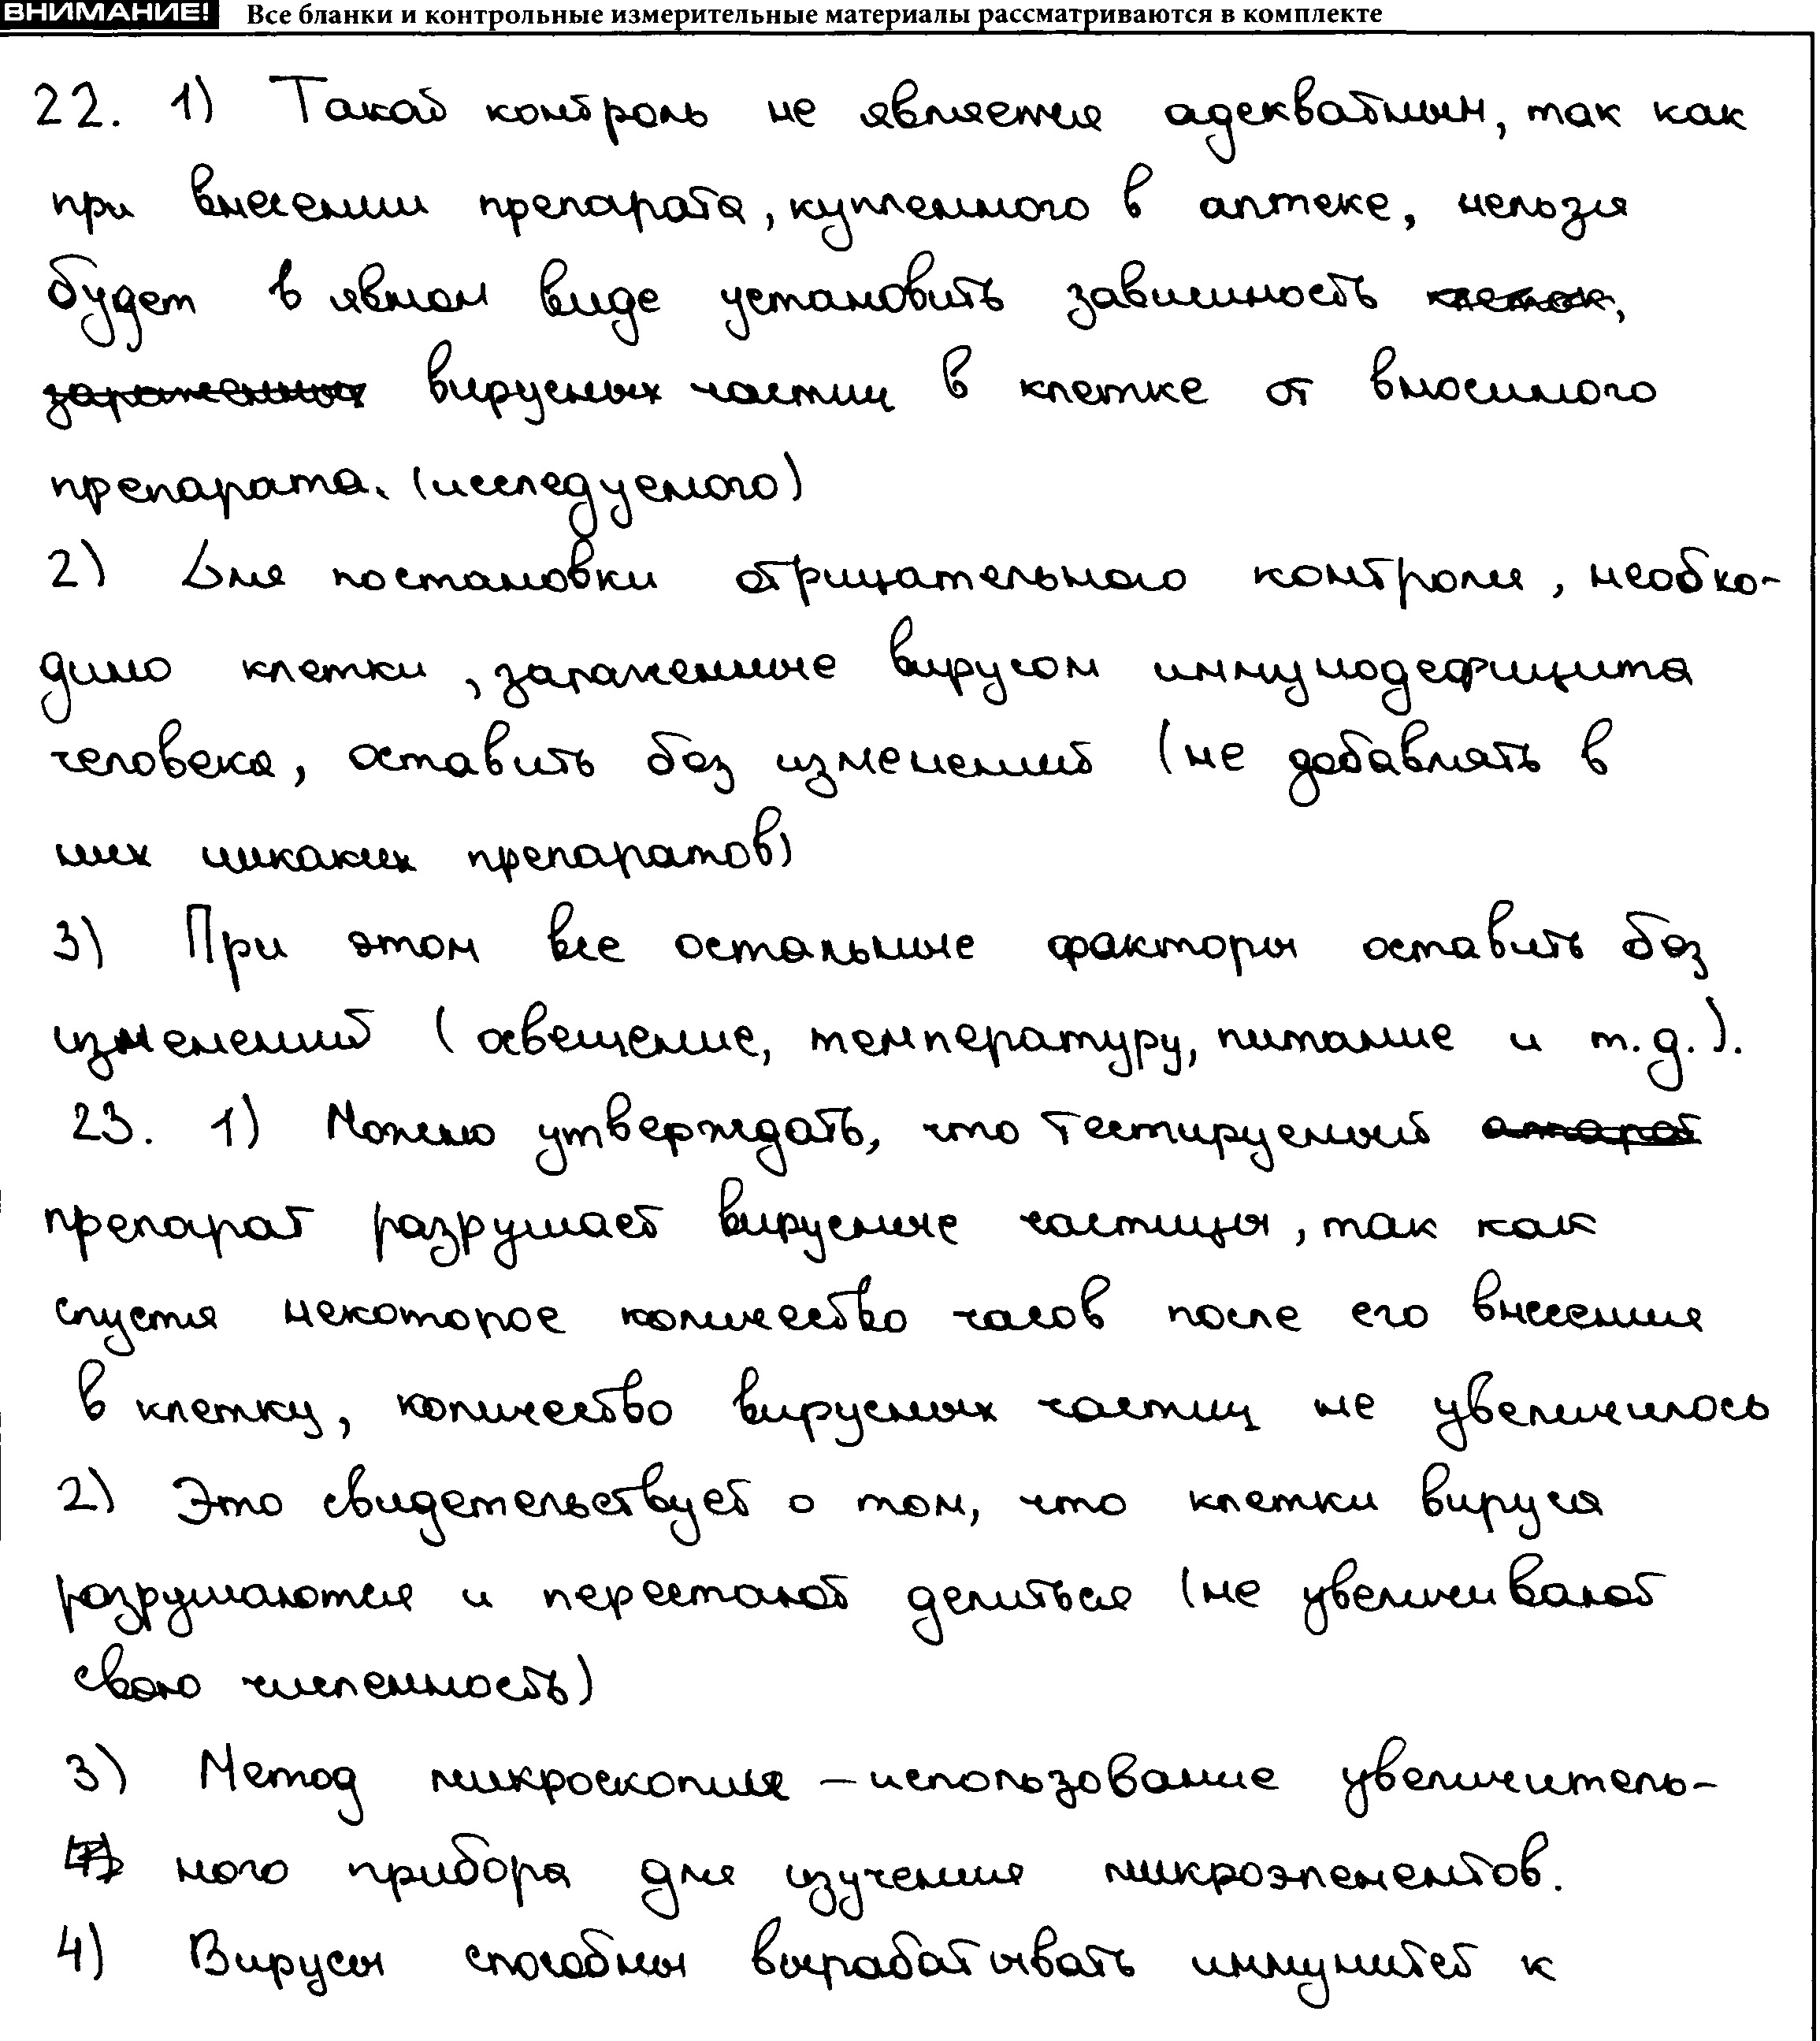 ВНИМАНИЕ! Все бланки и контрольные измерительные материалы рассматриваются в комплекте
22. 1) Такой контроль не является адекватным, так как
при внесении препарата, купленного в аптеке, нельзя
будет в явном виде установить зависимость клеток,
зараженных вирусных частиц в клетке от вносимого
препарата. (исследуемого)
2) Для постановки отрицательного контроля, необхо-
димо клетки, зараженные вирусом иммунодефицита
человека, оставить без изменений (не добавлять в
них никаких препаратов)
3) При этом все остальные факторы оставить без
изменений (освещение, температуру, питание и т.д.).
23. 1) Можно утверждать, что тестируемый
препарат разрушает вирусные частицы, так как
спустя некоторое количество часов после его внесения
в клетку, количество вирусных частиц не увеличилось
2) Это свидетельствует о том, что клетки вируса
разрушаются и перестают делиться (не увеличивают
свою численность)
3) Метод микроскопия – использование увеличитель-
ного прибора для изучения микроэлементов.
4) Вирусы способны вырабатывать иммунитет к